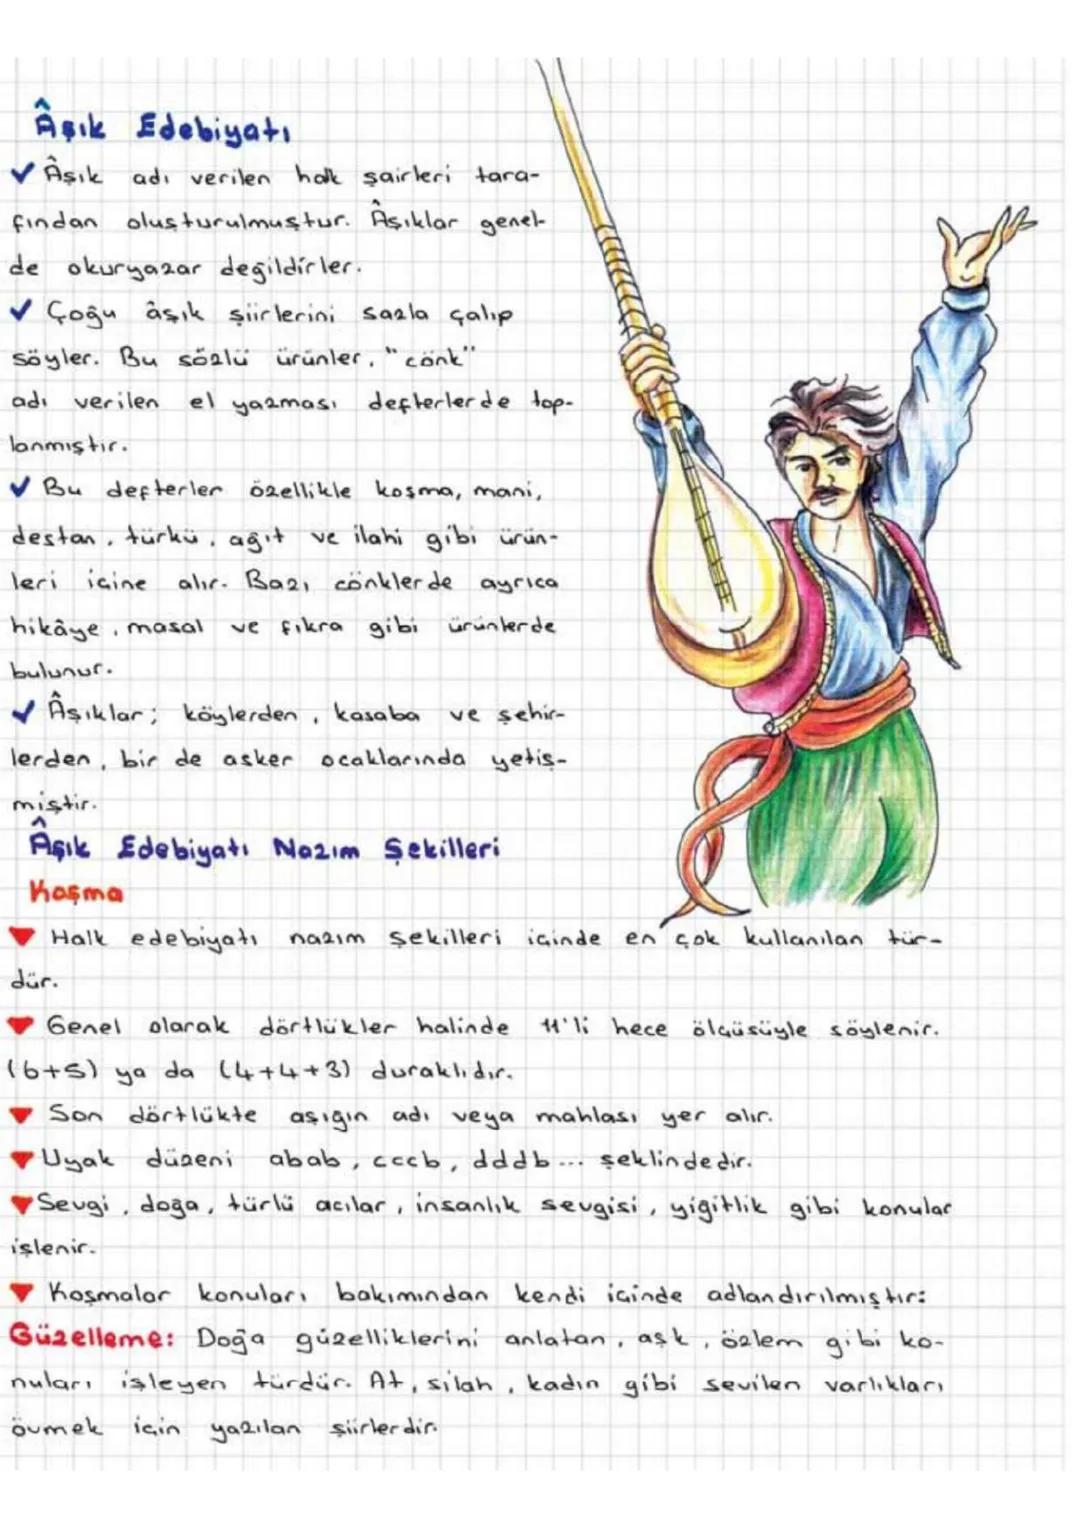 Âşık Edebiyatı
✓ Âşık adı verilen halk şairleri tara-
fından oluşturulmuştur. Âşıklar genel-
de okuryazar değildirler.
✓ Çoğu âşık şiirlerini sazla çalıp
söyler. Bu sözlü ürünler, "cönk"
adı verilen el yazması defterlerde top-
lanmıştır.
✓ Bu defterler özellikle koşma, mani,
destan, türkü, ağıt ve ilahi gibi ürün-
leri içine alır. Bazı cönklerde ayrıca
hikâye, masal ve fıkra gibi ürünlerde
bulunur.
✓ Âşıklar; köylerden, kasaba ve şehir-
lerden, bir de asker ocaklarında yetiş-
miştir.
Âşık Edebiyatı Nazım Şekilleri
Koşma
▼ Halk edebiyatı nazım şekilleri içinde en çok kullanılan tür-
dür.
▼ Genel olarak dörtlükler halinde 11'li hece ölçüsüyle söylenir.
(6+5) ya da (4+4+3) duraklıdır.
▼ Son dörtlükte aşığın adı veya mahlası yer alır.
▼ Uyak düzeni abab, cccb, dddb... şeklindedir.
▼ Sevgi, doğa, türlü acılar, insanlık sevgisi, yiğitlik gibi konular
işlenir.
▼ Koşmalar konuları bakımından kendi içinde adlandırılmıştır:
Güzelleme: Doğa güzelliklerini anlatan, aşk, özlem gibi ko-
nuları işleyen türdür. At, silah, kadın gibi sevilen varlıkları
övmek için yazılan şiirlerdir.